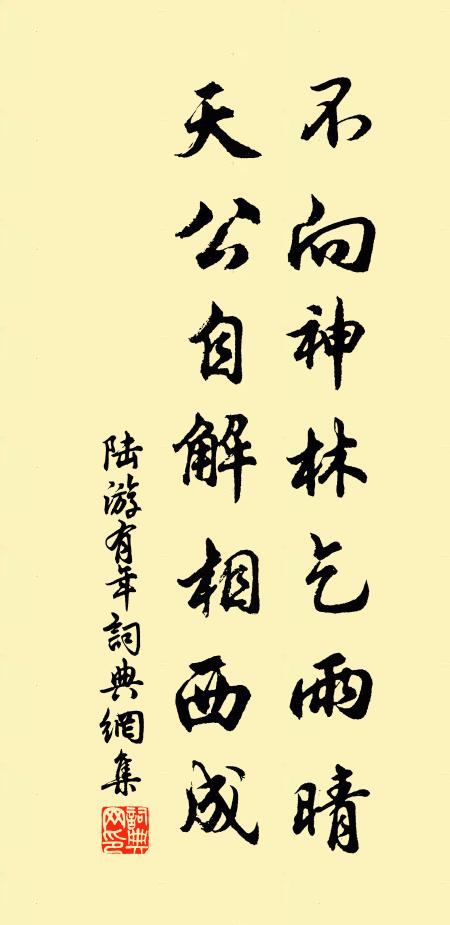 不向神林乞雨晴
天公自解相西成
陆游有年詞典網集
詞典网印